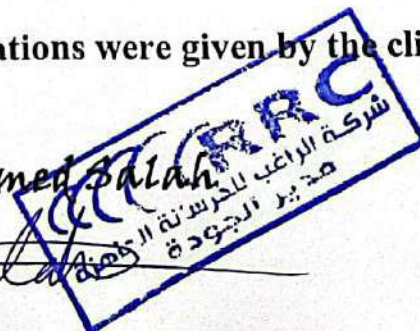 ations were given by the cli
med Salah
RRC
شركة الراغب للخرسانة الجاهزة
مدير الجودة